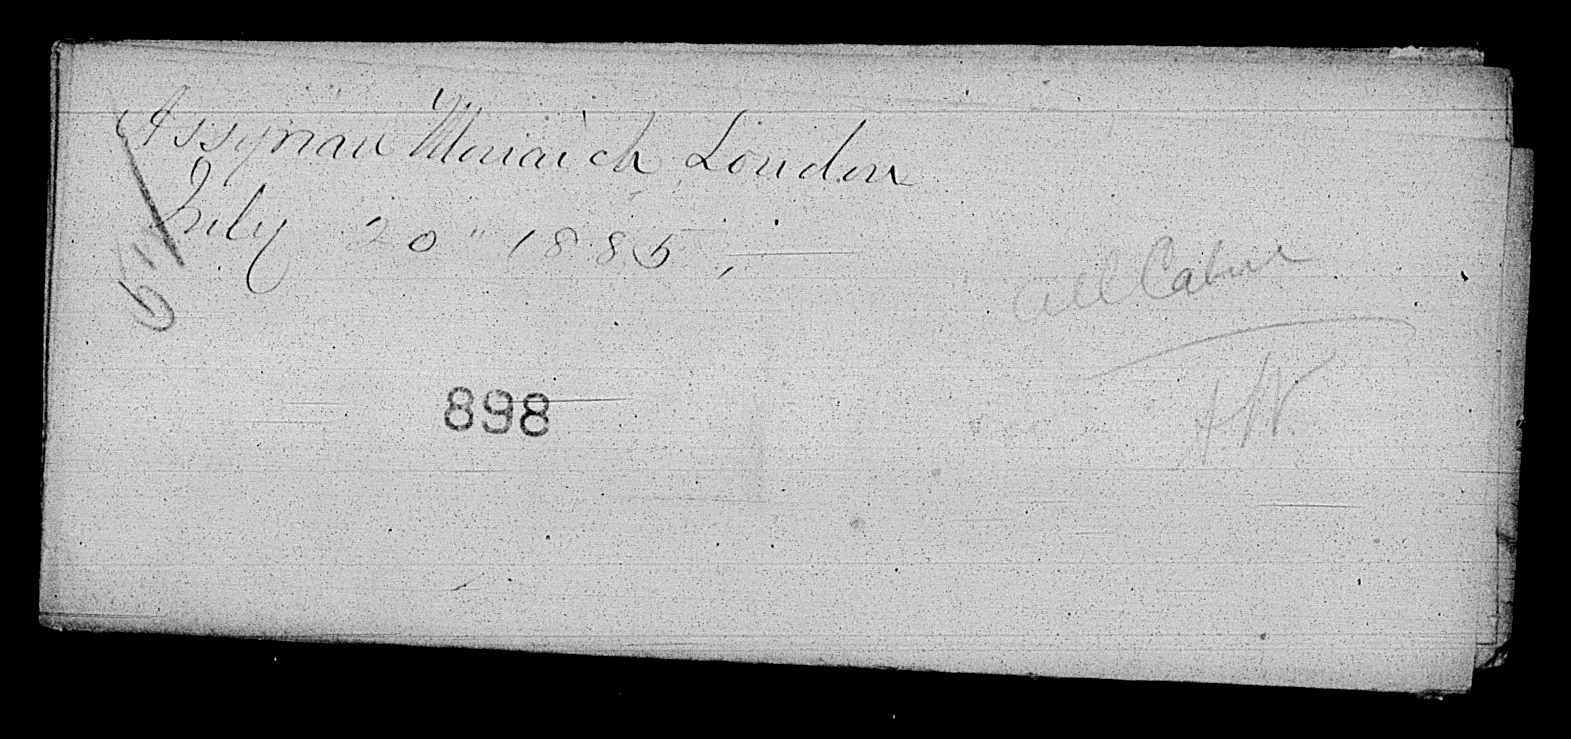 Assyrian Monarch London
July 20" 1885,
All Cabin
898